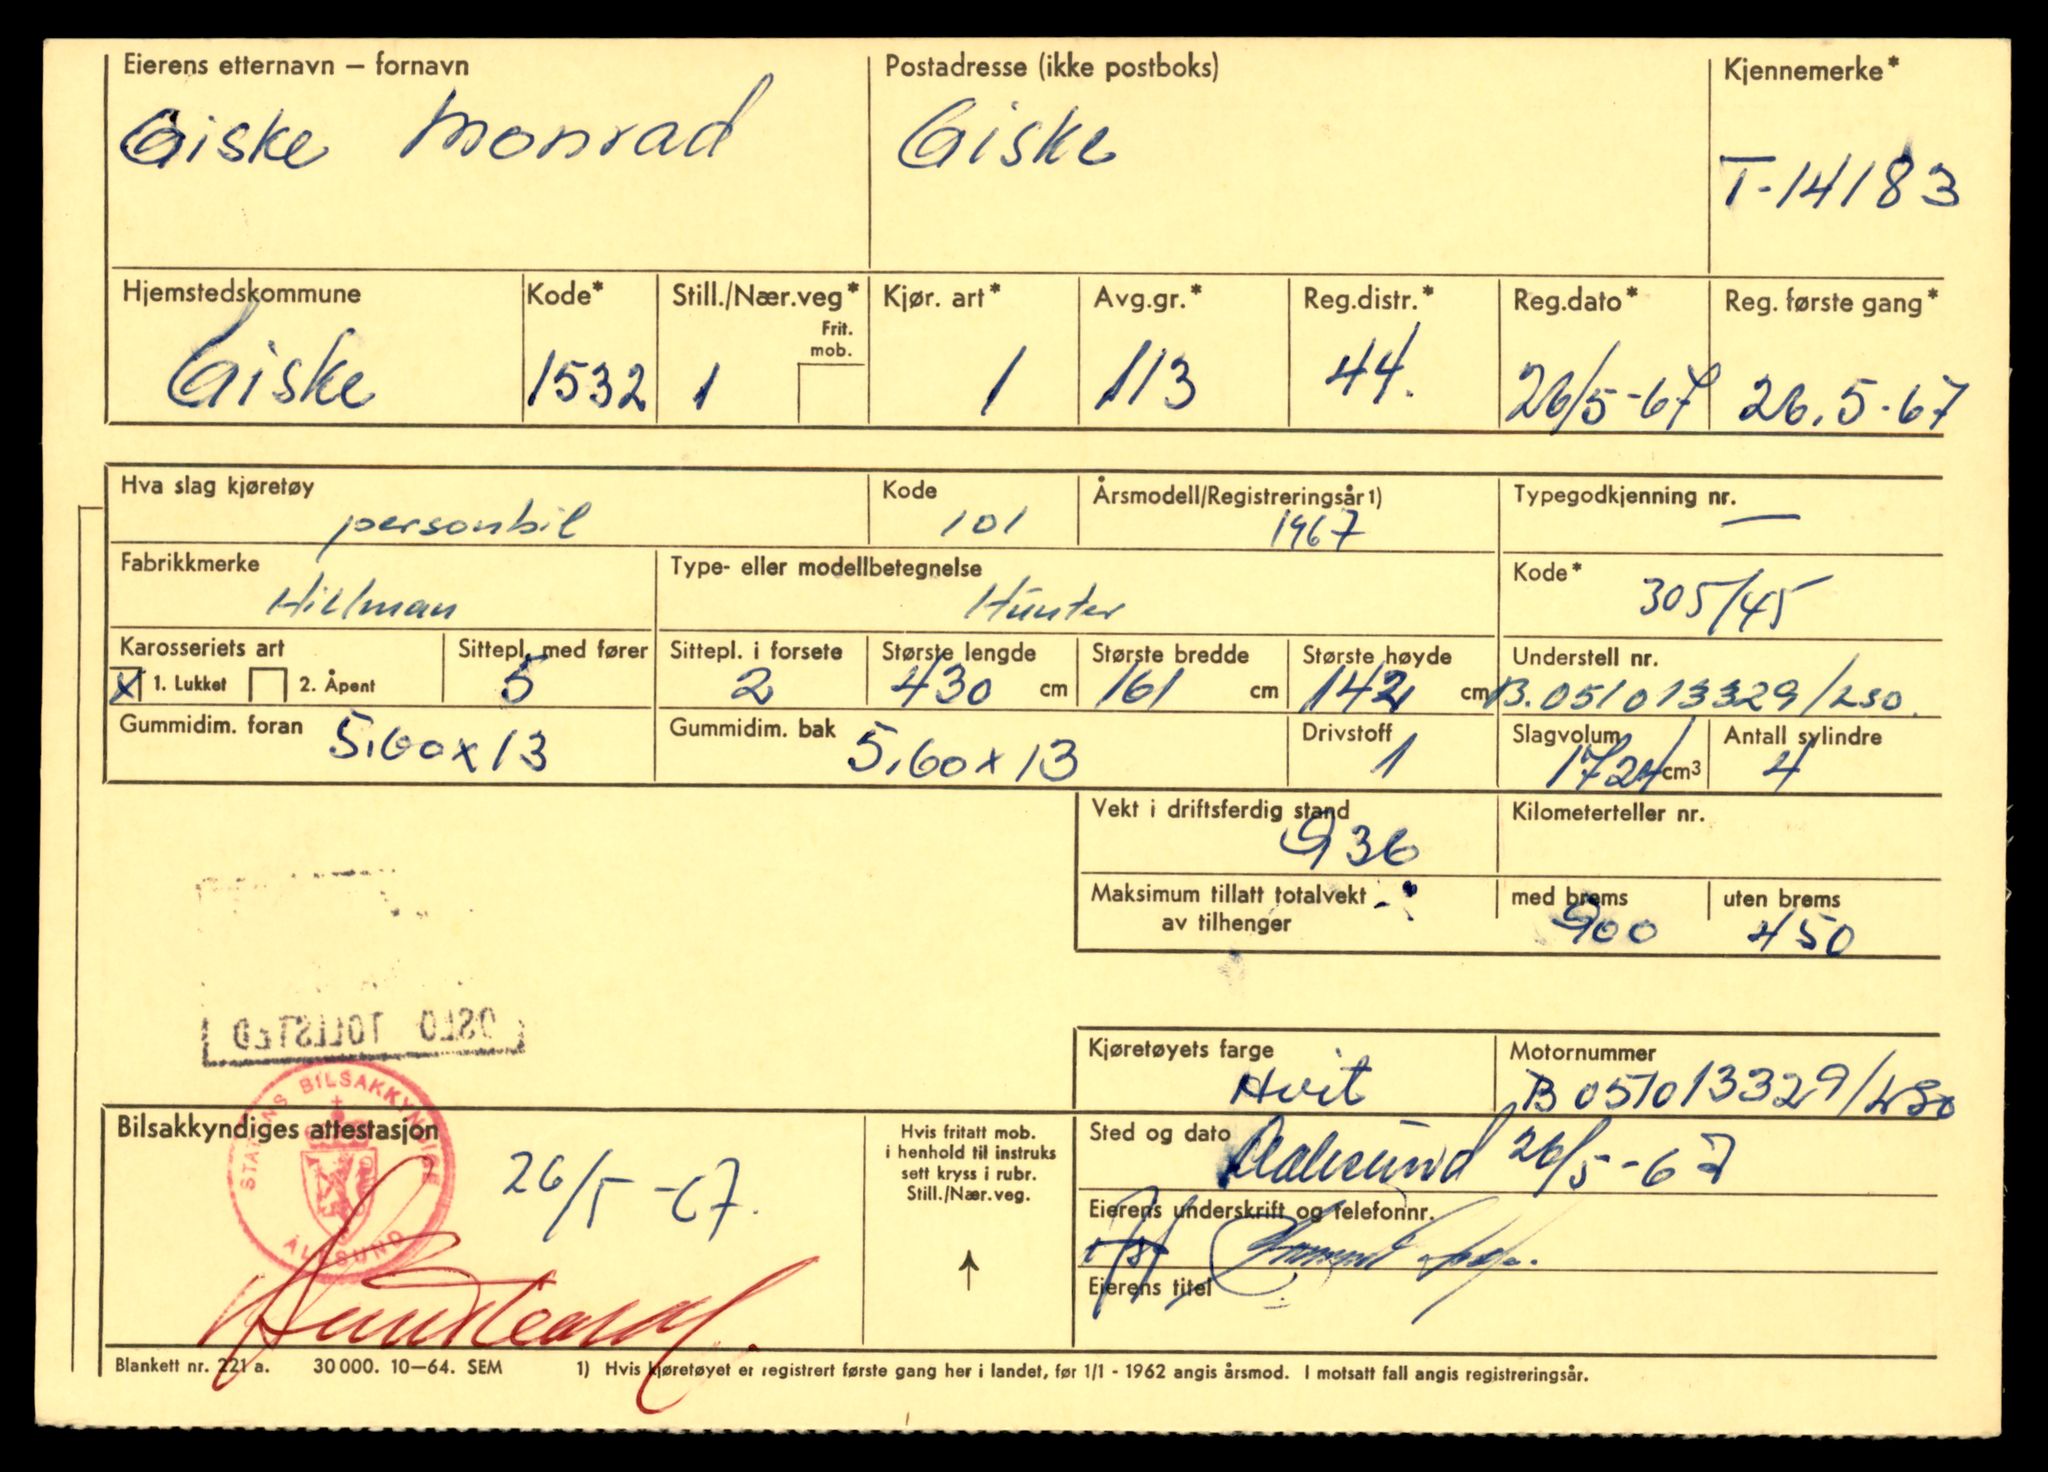 Eierens etternavn – fornavn
Giske Monrad
Postadresse (ikke postboks)
Giske
Kjennemerke*
T-14183
Hjemstedskommune
Giske
Kode*
1532
Still./Nær.veg*
Frit. mob.
1
Kjør. art*
1
Avg.gr.*
113
Reg.distr.*
44.
Reg.dato*
26/5-67
Reg. første gang*
26.5-67
Hva slag kjøretøy
personbil
Kode
101
Årsmodell/Registreringsår 1)
1967
Typegodkjenning nr.
—
Fabrikkmerke
Hillman
Type- eller modellbetegnelse
Hunter
Kode*
305/45
Karosseriets art
X 1. Lukket 2. Åpent
Sittepl. med fører
5
Sittepl. i forsete
2
Største lengde
430 cm
Største bredde
161 cm
Største høyde
142 cm
Understell nr.
B.051013329/LSO.
Gummidim. foran
5.60x13
Gummidim. bak
5.60x13
Drivstoff
1
Slagvolum
1724 cm3
Antall sylindre
4
Vekt i driftsferdig stand
936
Kilometerteller nr.
Maksimum tillatt totalvekt
av tilhenger
med brems
900
uten brems
450
OSLO TOLLSTED
Kjøretøyets farge
Hvit
Motornummer
B051013329/LSO
STATENS BILSAKKYNDIGE
ÅLESUND
Bilsakkyndiges attestasjon
26/5-67.
Hvis fritatt mob.
i henhold til instruks
sett kryss i rubr.
Still./Nær.veg.
Sted og dato
Aalesund 26/5-67
Eierens underskrift og telefonnr.
Eierens titel
Blankett nr. 221 a. 30 000. 10—64. SEM 1) Hvis kjøretøyet er registrert første gang her i landet, før 1/1 - 1962 angis årsmod. I motsatt fall angis registreringsår.